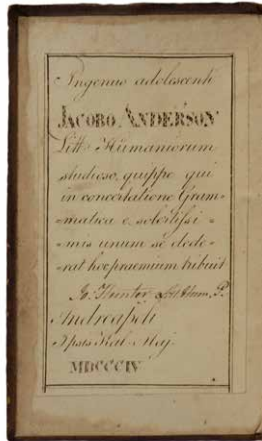 Ingenuo adolescenti
JACOBO ANDERSON
Litt. Humaniorum
studioso, quippe qui
in concertatione Gram-
-matica e solertissi-
-mis unum se dede-
-rat hoc praemium tribuit
Hunter Litt. Hum. P.
Andreapoli
Ipsis Kal. Maj.
MDCCCIV